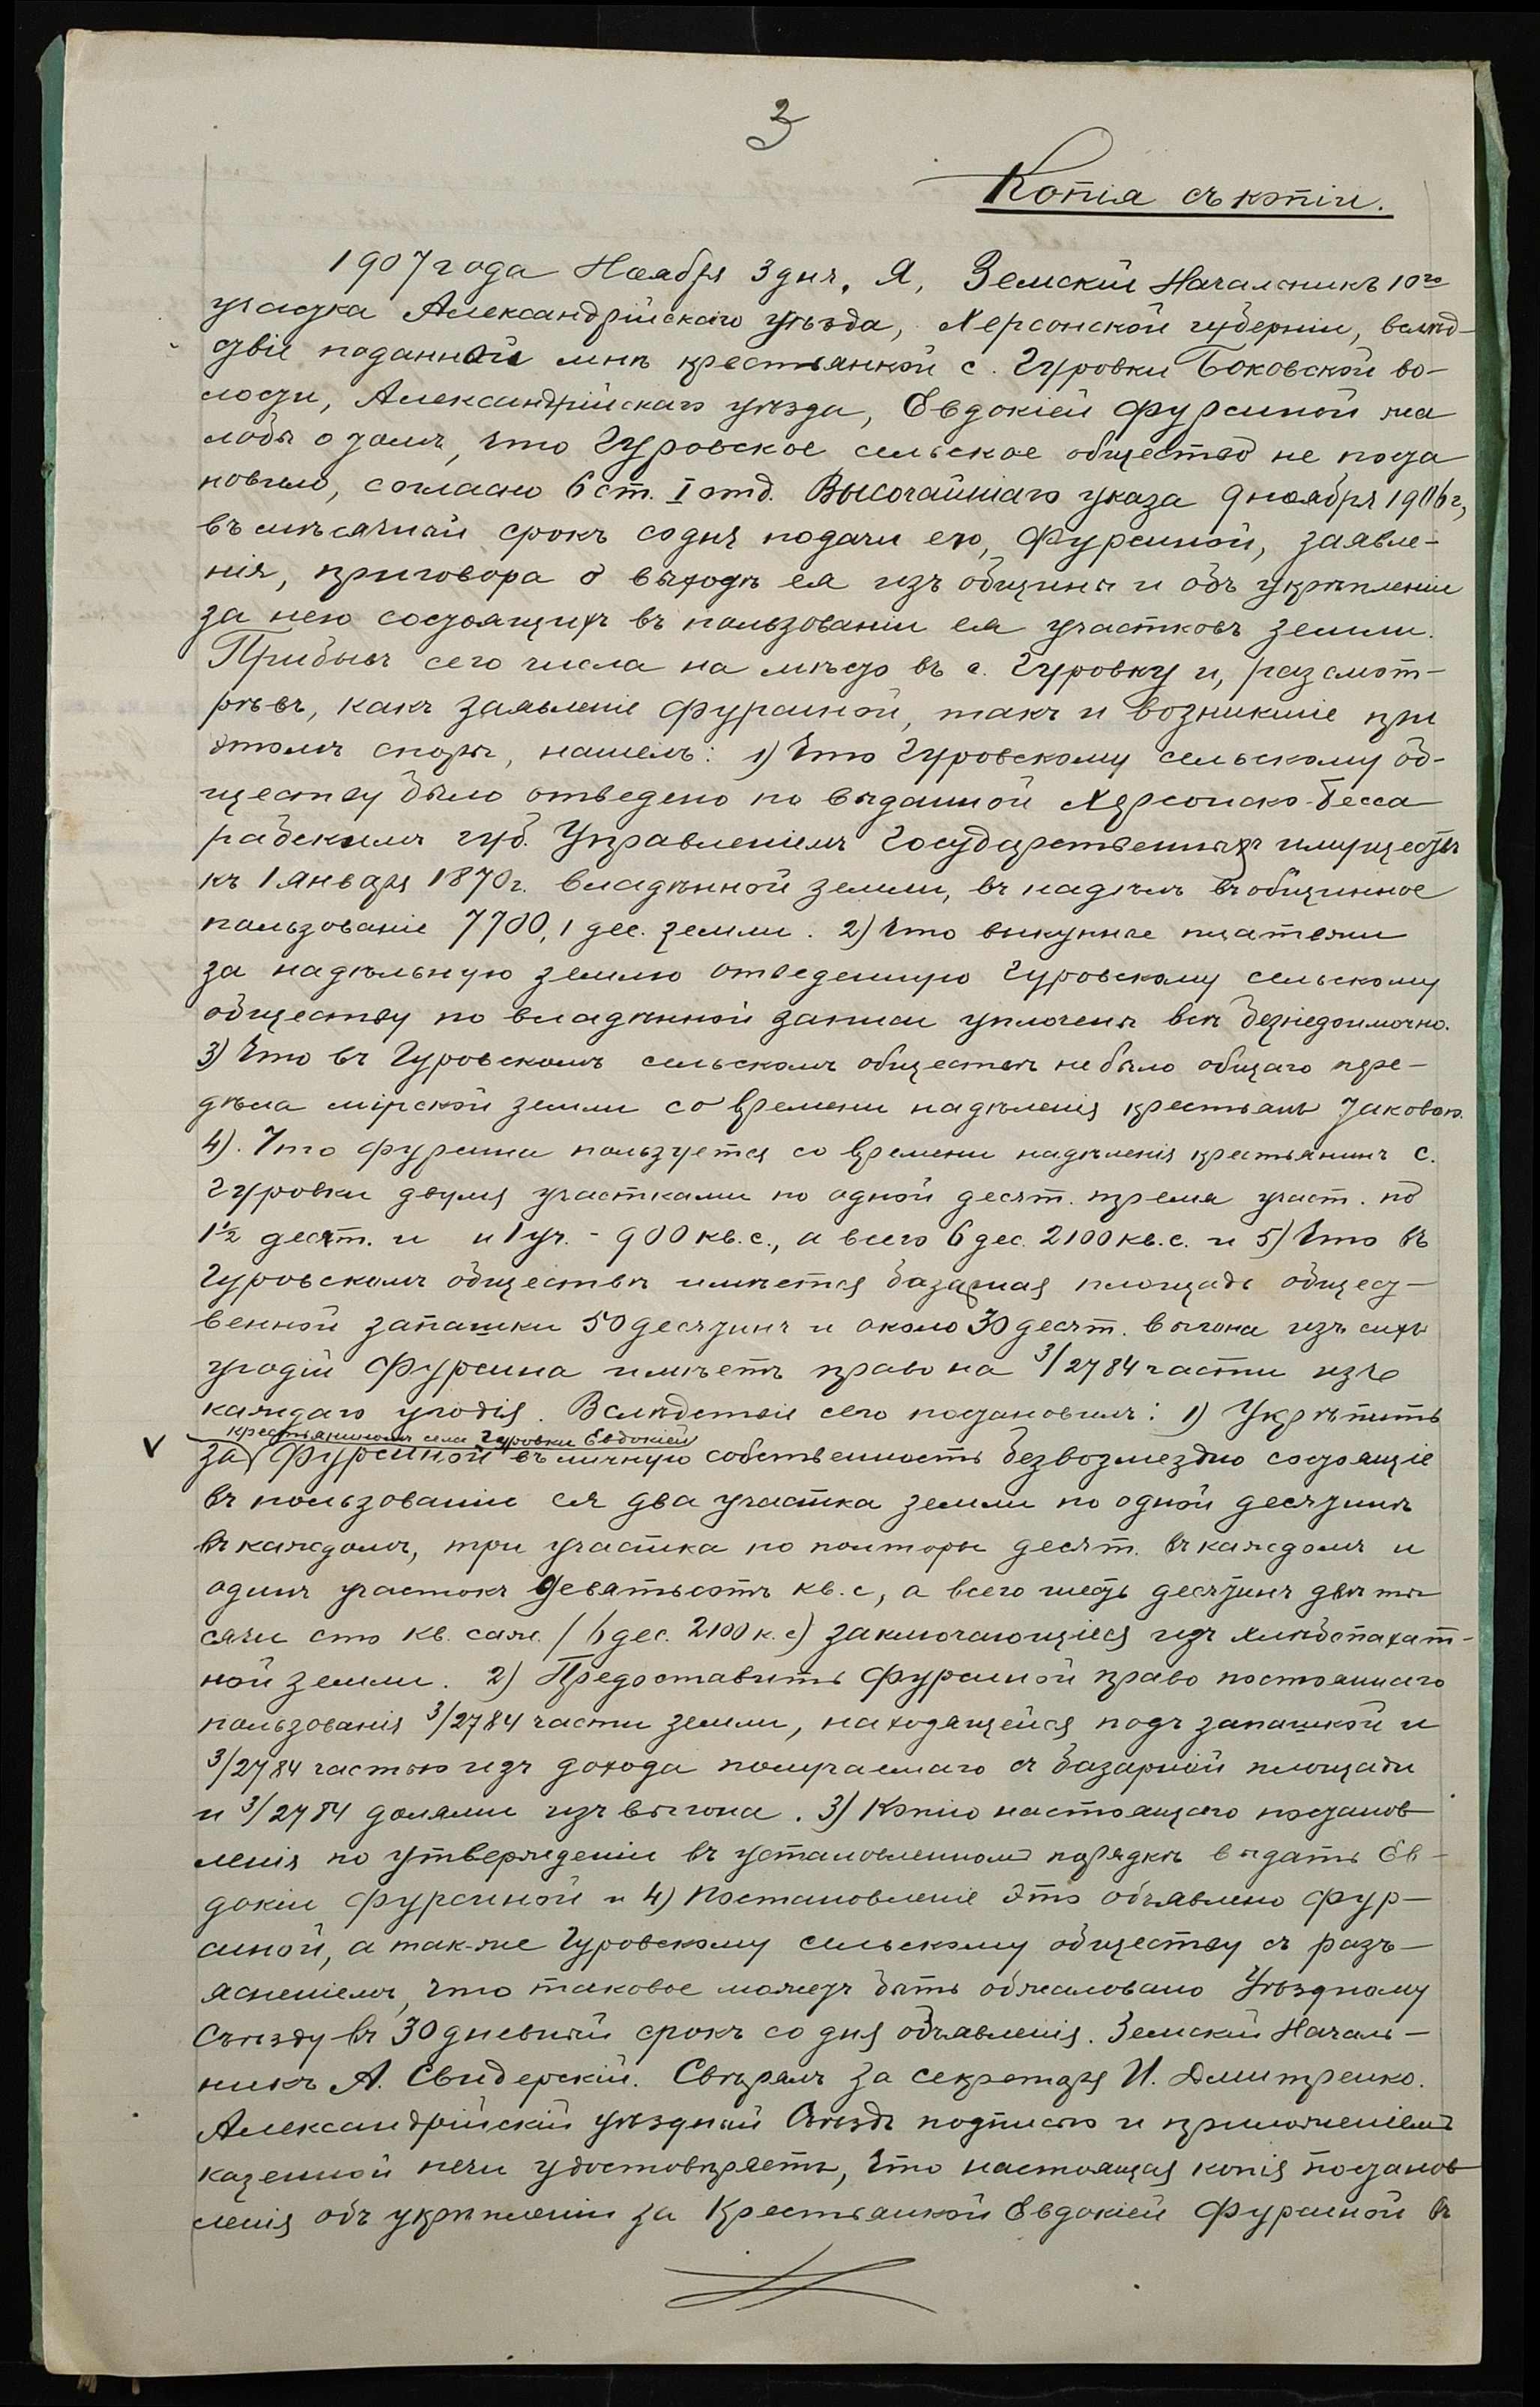 3
Копія съ копіи.
1907 года Ноября 3 дня, Я, Земскій Начальникъ 10го
участка Александрійскаго уѣзда, Херсонской губерніи, вслѣд-
ствіе поданной мнѣ крестьянкой с. Гуровки Боковской во-
лости, Александрійскаго уѣзда, Евдокіей Фурсиной жа
лобы о томъ, что Гуровское сельское общество не поста
новило, согласно 6 ст. I отд. Высочайшаго указа 9 ноября 1906 г,
въ мѣсячный срокъ со дня подачи ею, Фурсиной, заявле-
нія, приговора о выходѣ ея изъ общины и объ укрѣпленіи
за нею состоящихъ въ пользованіи ея участковъ земли.
Прибывъ сего числа на мѣсто въ с. Гуровку и, разсмот-
рѣвъ, какъ заявленіе Фурсиной, такъ и возникшіе при
этомъ споры, нашелъ: 1) Что Гуровскому сельскому об-
ществу было отведено по выданной Херсонско-Бесса
рабскимъ губ. Управленіемъ Государственныхъ имуществъ
къ 1 января 1870 г. владѣнной земли, въ надѣлъ въ общинное
пользованіе 7700,1 дес. земли. 2) Что выкупные платежи
за надѣльную землю отведенную Гуровскому сельскому
обществу по владѣнной записи уплочены всѣ безнедоимочно.
3) Что въ Гуровскомъ сельскомъ обществѣ не было общаго пере-
дѣла мірской земли со времени надѣленія крестьянъ таковою.
4). Что Фурсина пользуется со времени надѣленія крестьянинъ с.
Гуровки двумя участками по одной десят. тремя участ. по
1½ десят. и и 1 уч. - 900 кв. с., а всего 6 дес. 2100 кв. с. и 5) Что въ
Гуровскомъ обществѣ имѣется базарная площадь общест-
венной запашки 50 десятинъ и около 30 десят. выгона изъ сихъ
угодій Фурсина имѣетъ право на 3/2784 части изъ
каждаго угодія. Вслѣдствіе сего постановилъ: 1) Укрѣпить
крестьянкою села Гуровки Евдокіей
V за Фурсиной въ личную собственность безвозмездно состоящіе
въ пользованіи ея два участка земли по одной десятинѣ
въ каждомъ, три участка по полторы десят. въ каждомъ и
одинъ участокъ девятьсотъ кв. с, а всего шесть десятинъ двѣ ты
сячи сто кв. саж. (6 дес. 2100 к. с) заключающіеся изъ хлѣбопахат-
ной земли. 2) Предоставить Фурсиной право постояннаго
пользованія 3/2784 части земли, находящейся подъ запашкой и
3/2784 частью изъ дохода получаемаго съ базарной площади
и 3/2784 долями изъ выгона. 3) Копію настоящаго постанов
ленія по утвержденіи въ установленномъ порядкѣ выдать Ев-
докіи Фурсиной и 4) Постановленіе это объявлено Фур-
синой, а так-же Гуровскому сельскому обществу съ разъ-
ясненіемъ, что таковое можетъ быть обжаловано Уѣздному
Съѣзду въ 30 дневный срокъ со дня объявленія. Земскій Началь-
никъ А. Свидерскій. Свѣрялъ за секретаря И. Дмитренко.
Александрійскій уѣздный Съѣздъ подписью и приложеніемъ
казенной печи удостовѣряетъ, что настоящая копія постанов
ленія объ укрѣпленіи за Крестьянкой Евдокіей Фурсиной въ